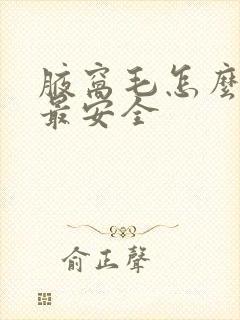 腋窩毛怎麼
最安全
俞正聲